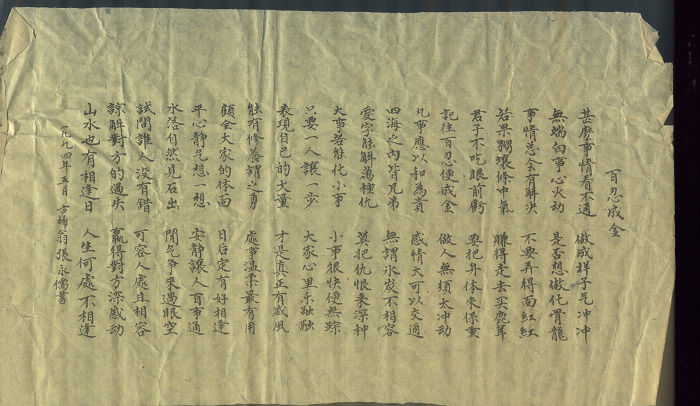 百忍成金
甚麼事情看不通 做成样子气冲冲
無端向事心火动 是否想做化骨龍
事情总会有解决 不要弄得面红红
若果嬲壞條中氣 賺得走去买鹿茸
君子不吃眼前虧 要把身体来保重
記住百忍便成金 做人無须太冲动
凡事應以和為貴 感情大可以交通
四海之内皆兄弟 無謂氷炭不相容
愛字能解萬種仇 莫把仇恨来深种
大事若能化小事 小事很快便無踪
只要一人讓一步 大家心里乐融融
表現自己的大量 才是真正有威风
能有修養謂之勇 處事温柔最有用
顧全大家的体面 日后定有好相逢
平心静气想一想 安静讓人百事通
水落自然見石出 閒气争来過眼空
試問誰人没有錯 可容人處且相容
諒解對方的過失 赢得對方深感动
山水也有相逢日 人生何處不相逢
一九九四年五月 古稀翁張永儒書